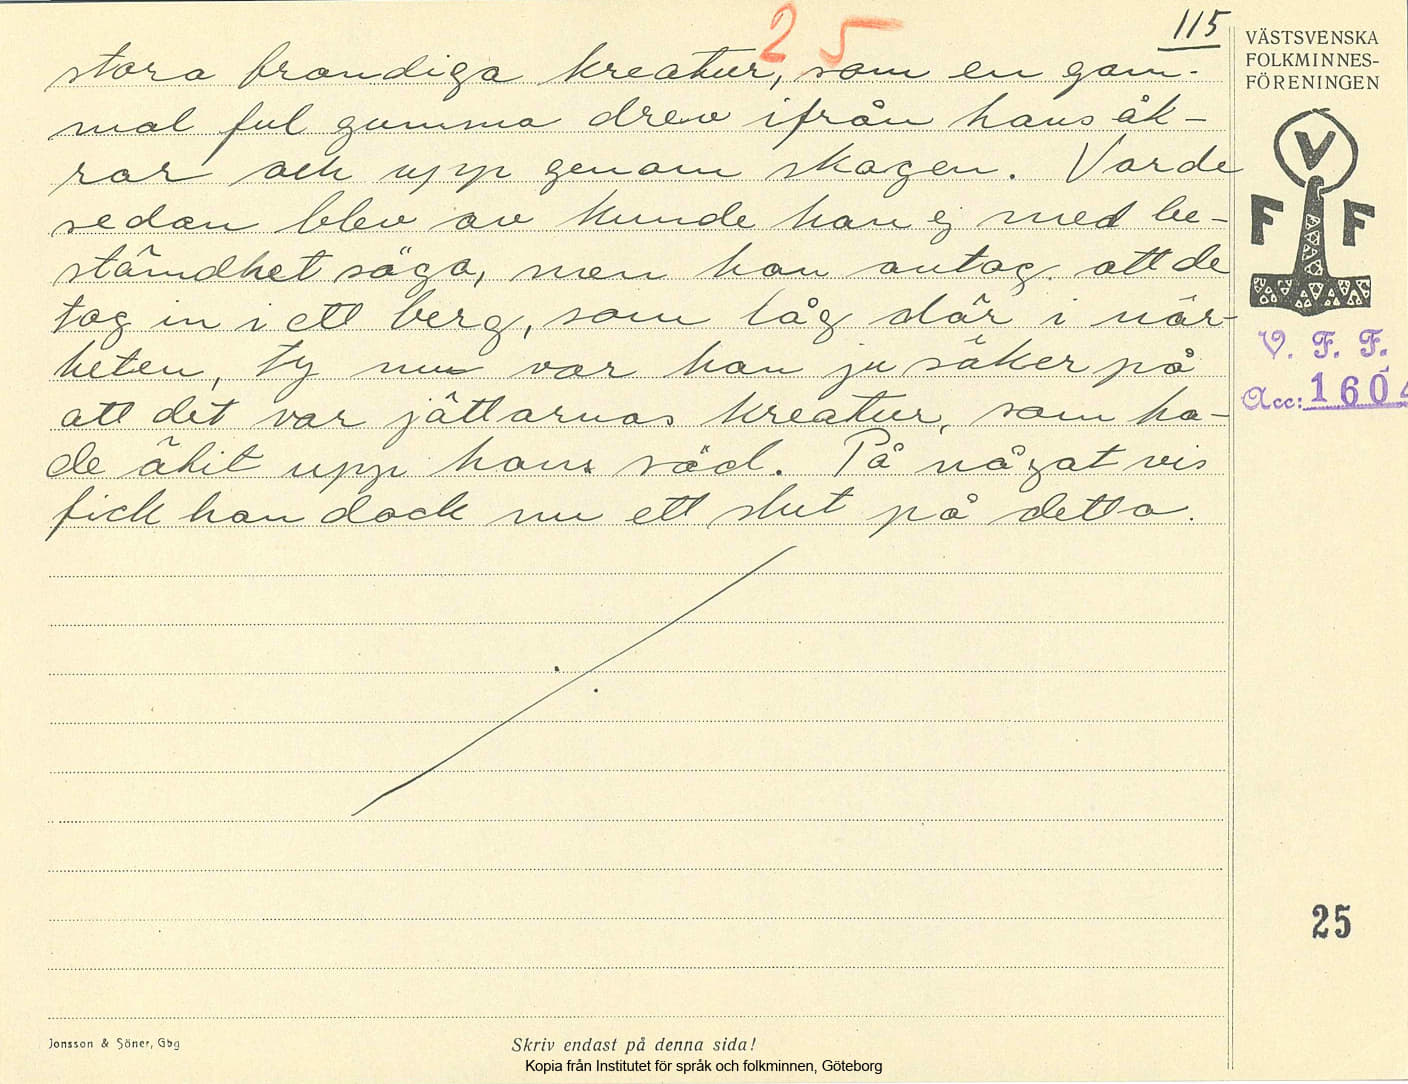 115
25
stora brandiga kreatur, som en gam-
mal ful gumma drev ifrån hans åk-
rar och upp genom skogen. Varde
sedan blev av kunde han ej med be-
stämdhet säga, men han antog att de
tog in i ett berg, som låg där i när-
heten, ty nu var han ju säker på
att det var jättarnas kreatur, som ha-
de ätit upp hans säd. På något vis
fick han dock nu ett slut på detta.
VÄSTSVENSKA
FOLKMINNES-
FÖRENINGEN
V
F F
V. F. F.
Acc: 1604
25
Jonsson & Söner, Gbg
Skriv endast på denna sida!
Kopia från Institutet för språk och folkminnen, Göteborg